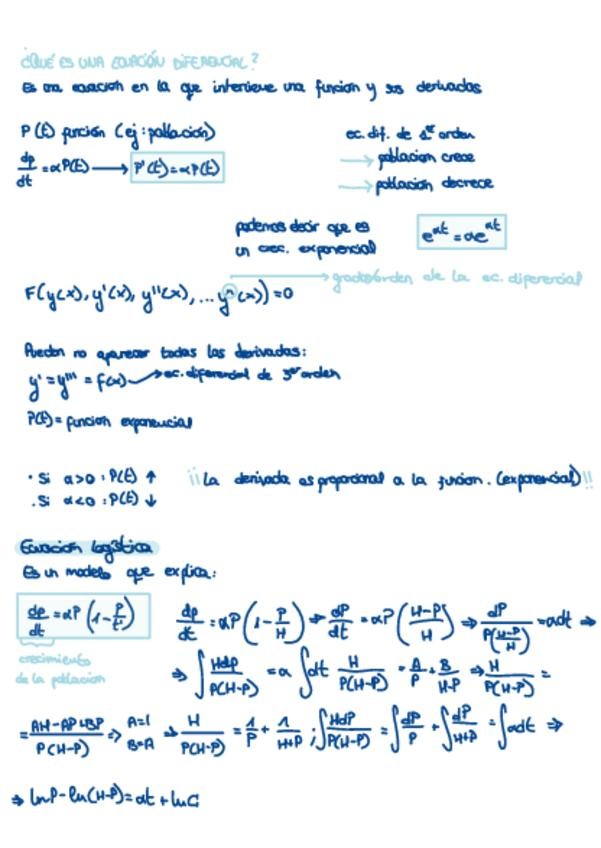 ¿QUÉ ES UNA ECUACIÓN DIFERENCIAL?
Es una ecuación en la que interviene una función y sus derivadas
P(t) función (ej: población)
ec. dif. de 1er orden
dp/dt = αP(t) → P'(t) = αP(t)
→ población crece
→ población decrece
podemos decir que es
un crec. exponencial
e^αt = αe^αt
→ grado/orden de la ec. diferencial
F(y(x), y'(x), y''(x), ... yⁿ(x)) = 0
Pueden no aparecer todas las derivadas:
y' = y''' = f(x) → ec. diferencial de 3er orden
P(t) = función exponencial
· Si α>0 : P(t) ↑
· Si α<0 : P(t) ↓
¡¡La derivada es proporcional a la función. (exponencial)!!
Ecuación logística
Es un modelo que explica:
dp/dt = αP (1 - P/t)
crecimiento
de la población
dp/dt = αP (1 - P/H) ⇒ dP/dt = αP (H-P/H) ⇒ dP/P(H-P/H) = αdt ⇒
⇒ ∫ HdP/P(H-P) = α ∫ dt H/P(H-P) = A/P + B/H-P ⇒ H/P(H-P) =
= AH-AP+BP/P(H-P) ⇒ A=1 B=A ⇒ H/P(H-P) = 1/P + 1/H+P ; ∫ HdP/P(H-P) = ∫ dP/P + ∫ dP/H+P = ∫ αdt ⇒
⇒ lnP - ln(H-P) = αt + lnC